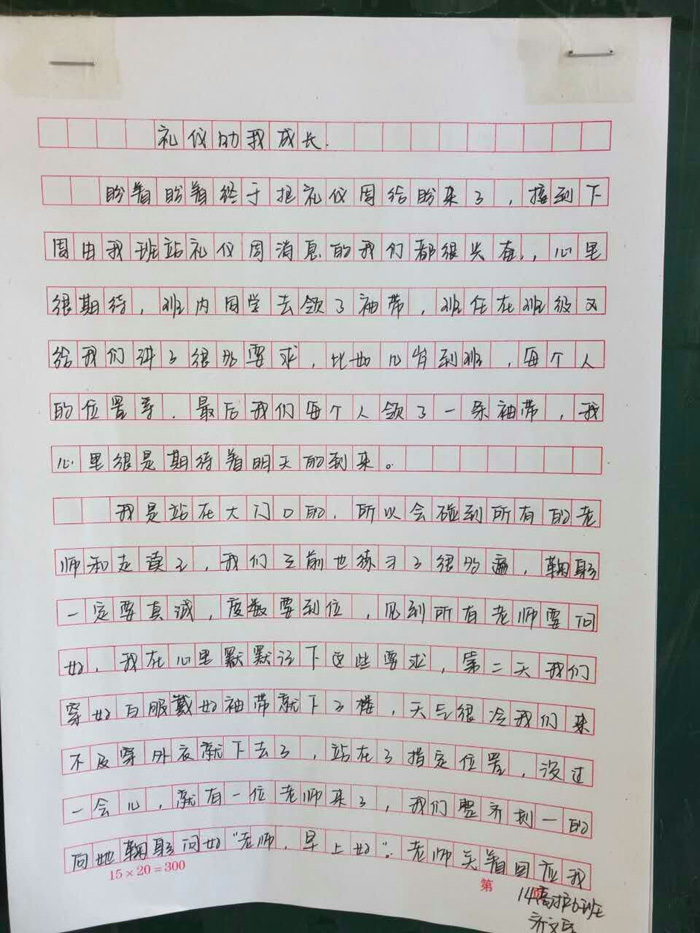 礼仪助我成长
盼着盼着终于把礼仪周给盼来了，接到下
周由我班站礼仪周消息的我们都很兴奋，心里
很期待，班内同学去领了袖带，班任在班级又
给我们讲了很多要求，比如几点到班，每个人
的位置等．最后我们每个人领了一条袖带，我
心里很是期待着明天的到来。
我是站在大门口的．所以会碰到所有的老
师和走读生，我们之前也练习了很多遍，鞠躬
一定要真诚，度数要到位，见到所有老师要问
好．我在心里默默记下这些要求，第二天我们
穿好校服戴好袖带就下了楼，天气很冷我们来
不及穿外衣就下去了，站在了指定位置，没过
一会儿，就有一位老师来了，我们整齐划一的
向她鞠躬问好“老师．早上好”．老师笑着回应我
15×20=300
第
14高护6班